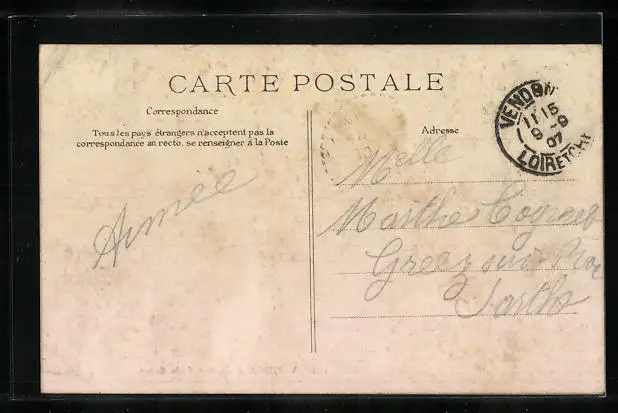 CARTE POSTALE
Correspondance
Tous les pays étrangers n'acceptent pas la
correspondance au recto, se renseigner à la Poste
Adresse
VENDÔM
11 15
9 - 9
07
LOIR ET CHER
Aimée
Melle
Marthe
Greez sur
Sarthe